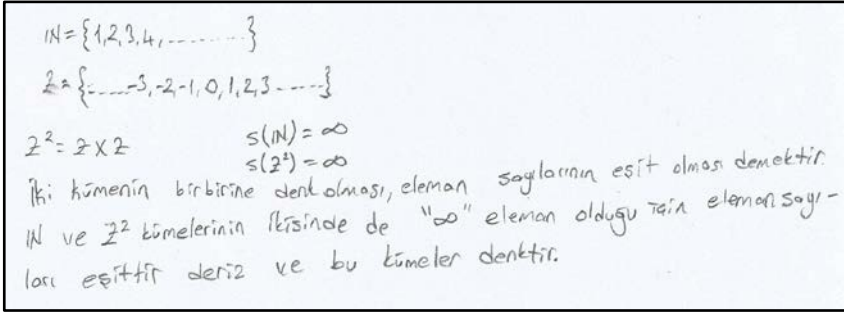 IN = {1,2,3,4,..........}
Z = {......-3,-2,-1,0,1,2,3-----}
Z² = Z X Z
s(IN) = ∞
s(Z²) = ∞
İki kümenin birbirine denk olması, eleman sayılarının eşit olması demektir.
IN ve Z² kümelerinin ikisinde de "∞" eleman olduğu için eleman sayı-
ları eşittir deriz ve bu kümeler denktir.